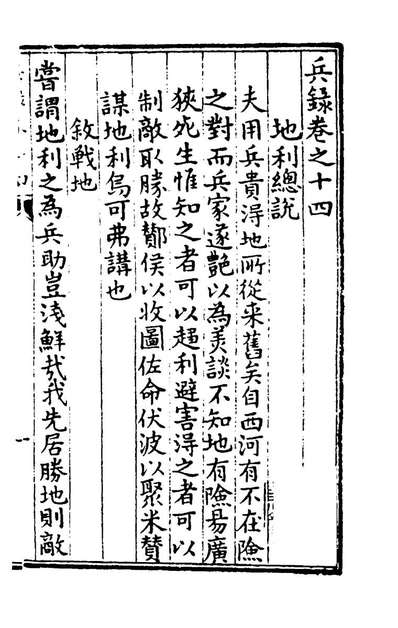 兵錄卷之十四
地利總說
夫用兵貴得地所從來舊矣自西河有不在險
之對而兵家遂艷以為美談不知地有險易廣
狹死生惟知之者可以趨利避害得之者可以
制敵取勝故酇侯以收圖佐命伏波以聚米贊
謀地利烏可弗講也
敘戰地
嘗謂地利之為兵助豈淺鮮哉我先居勝地則敵